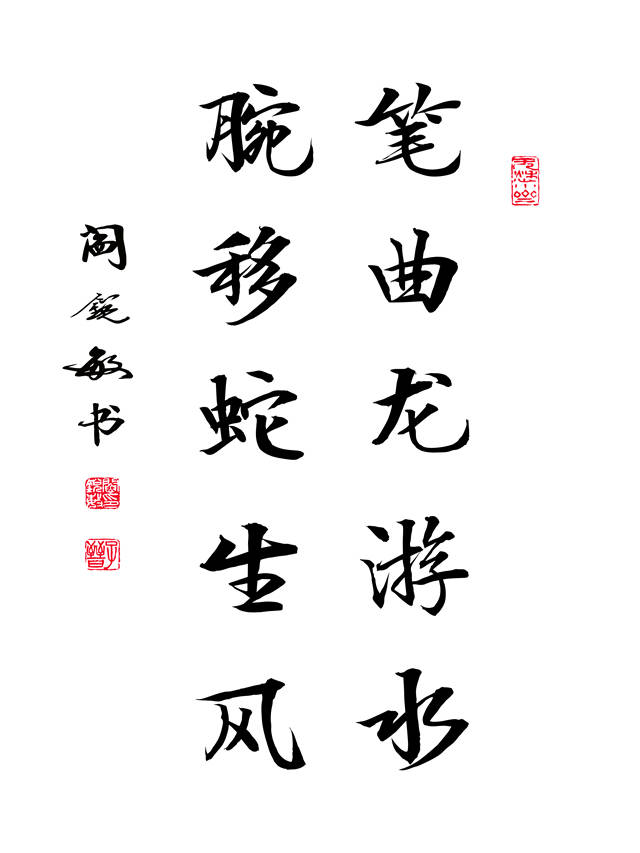 笔曲龙游水
腕移蛇生风
阎锐敏书